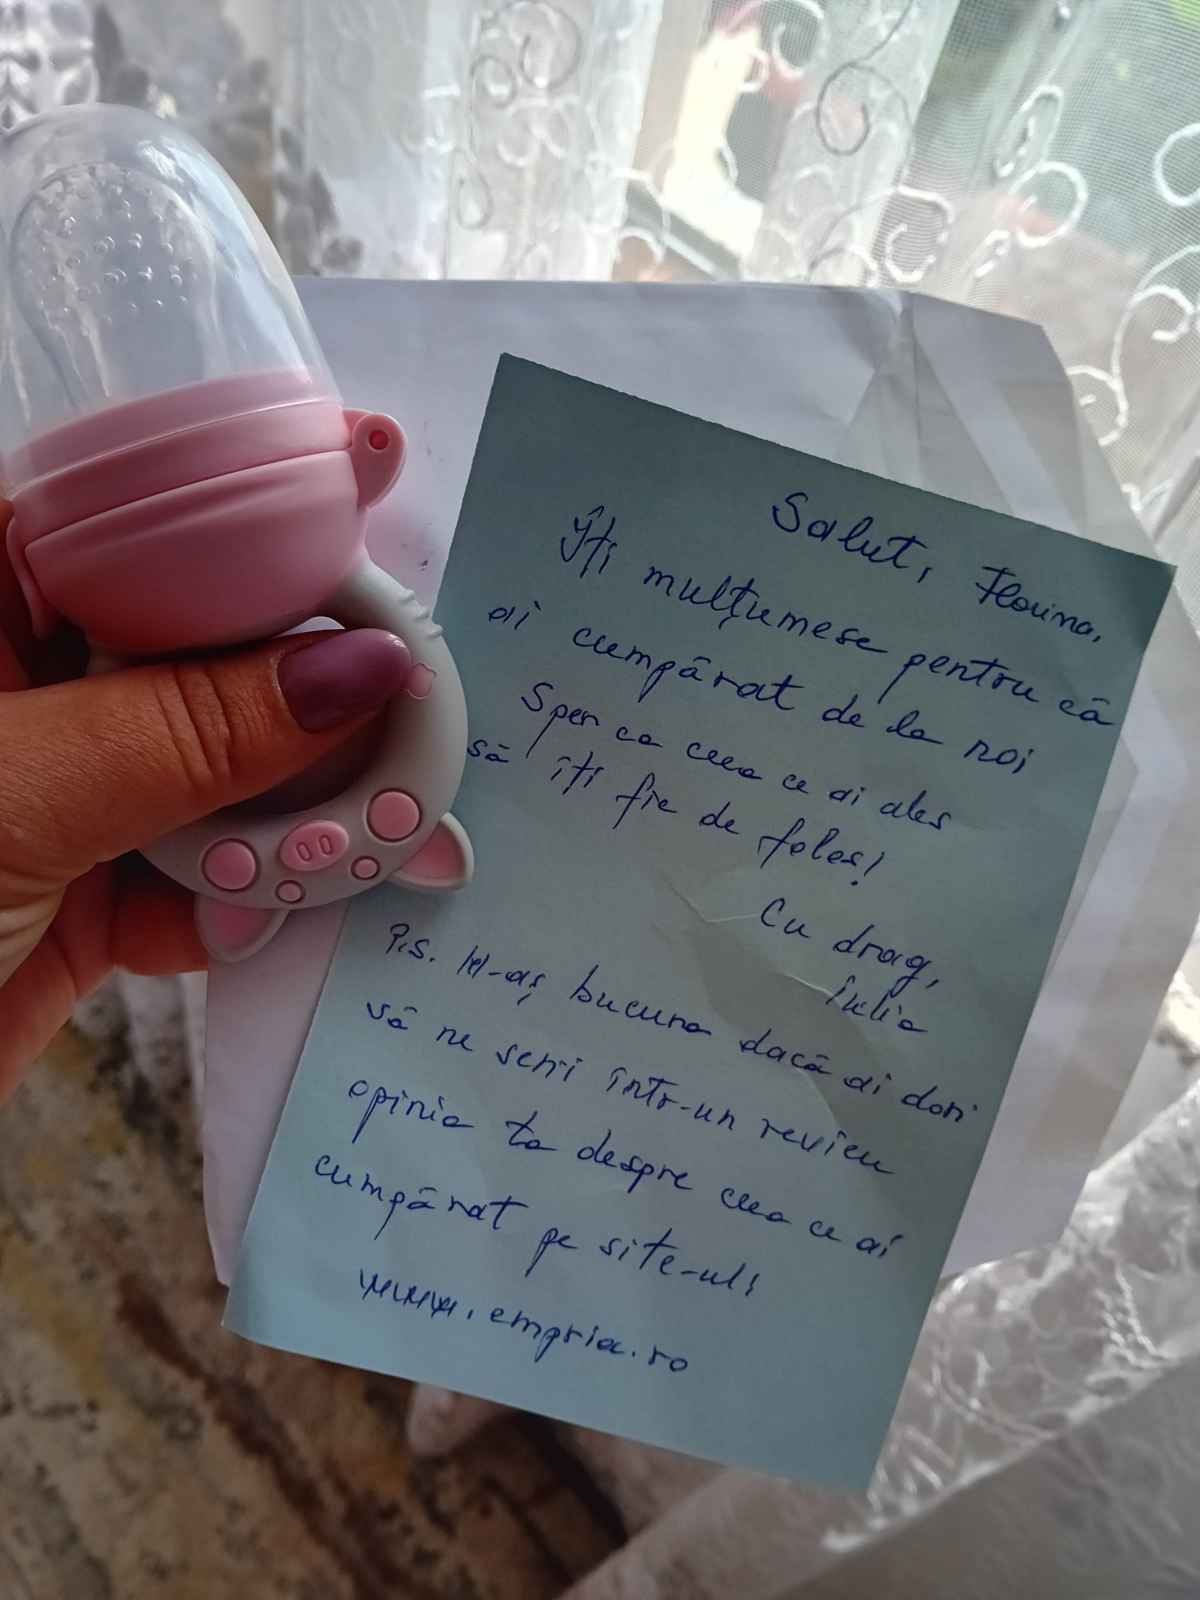 Salut, Florina,
Îți mulțumesc pentru că
ai cumpărat de la noi
Sper ca ceea ce ai ales
să îți fie de folos!
Cu drag,
Iulia
P.S. M-aș bucura dacă ai dori
să ne scrii într-un review
opinia ta despre ceea ce ai
cumpărat pe site-ul:
www.empria.ro